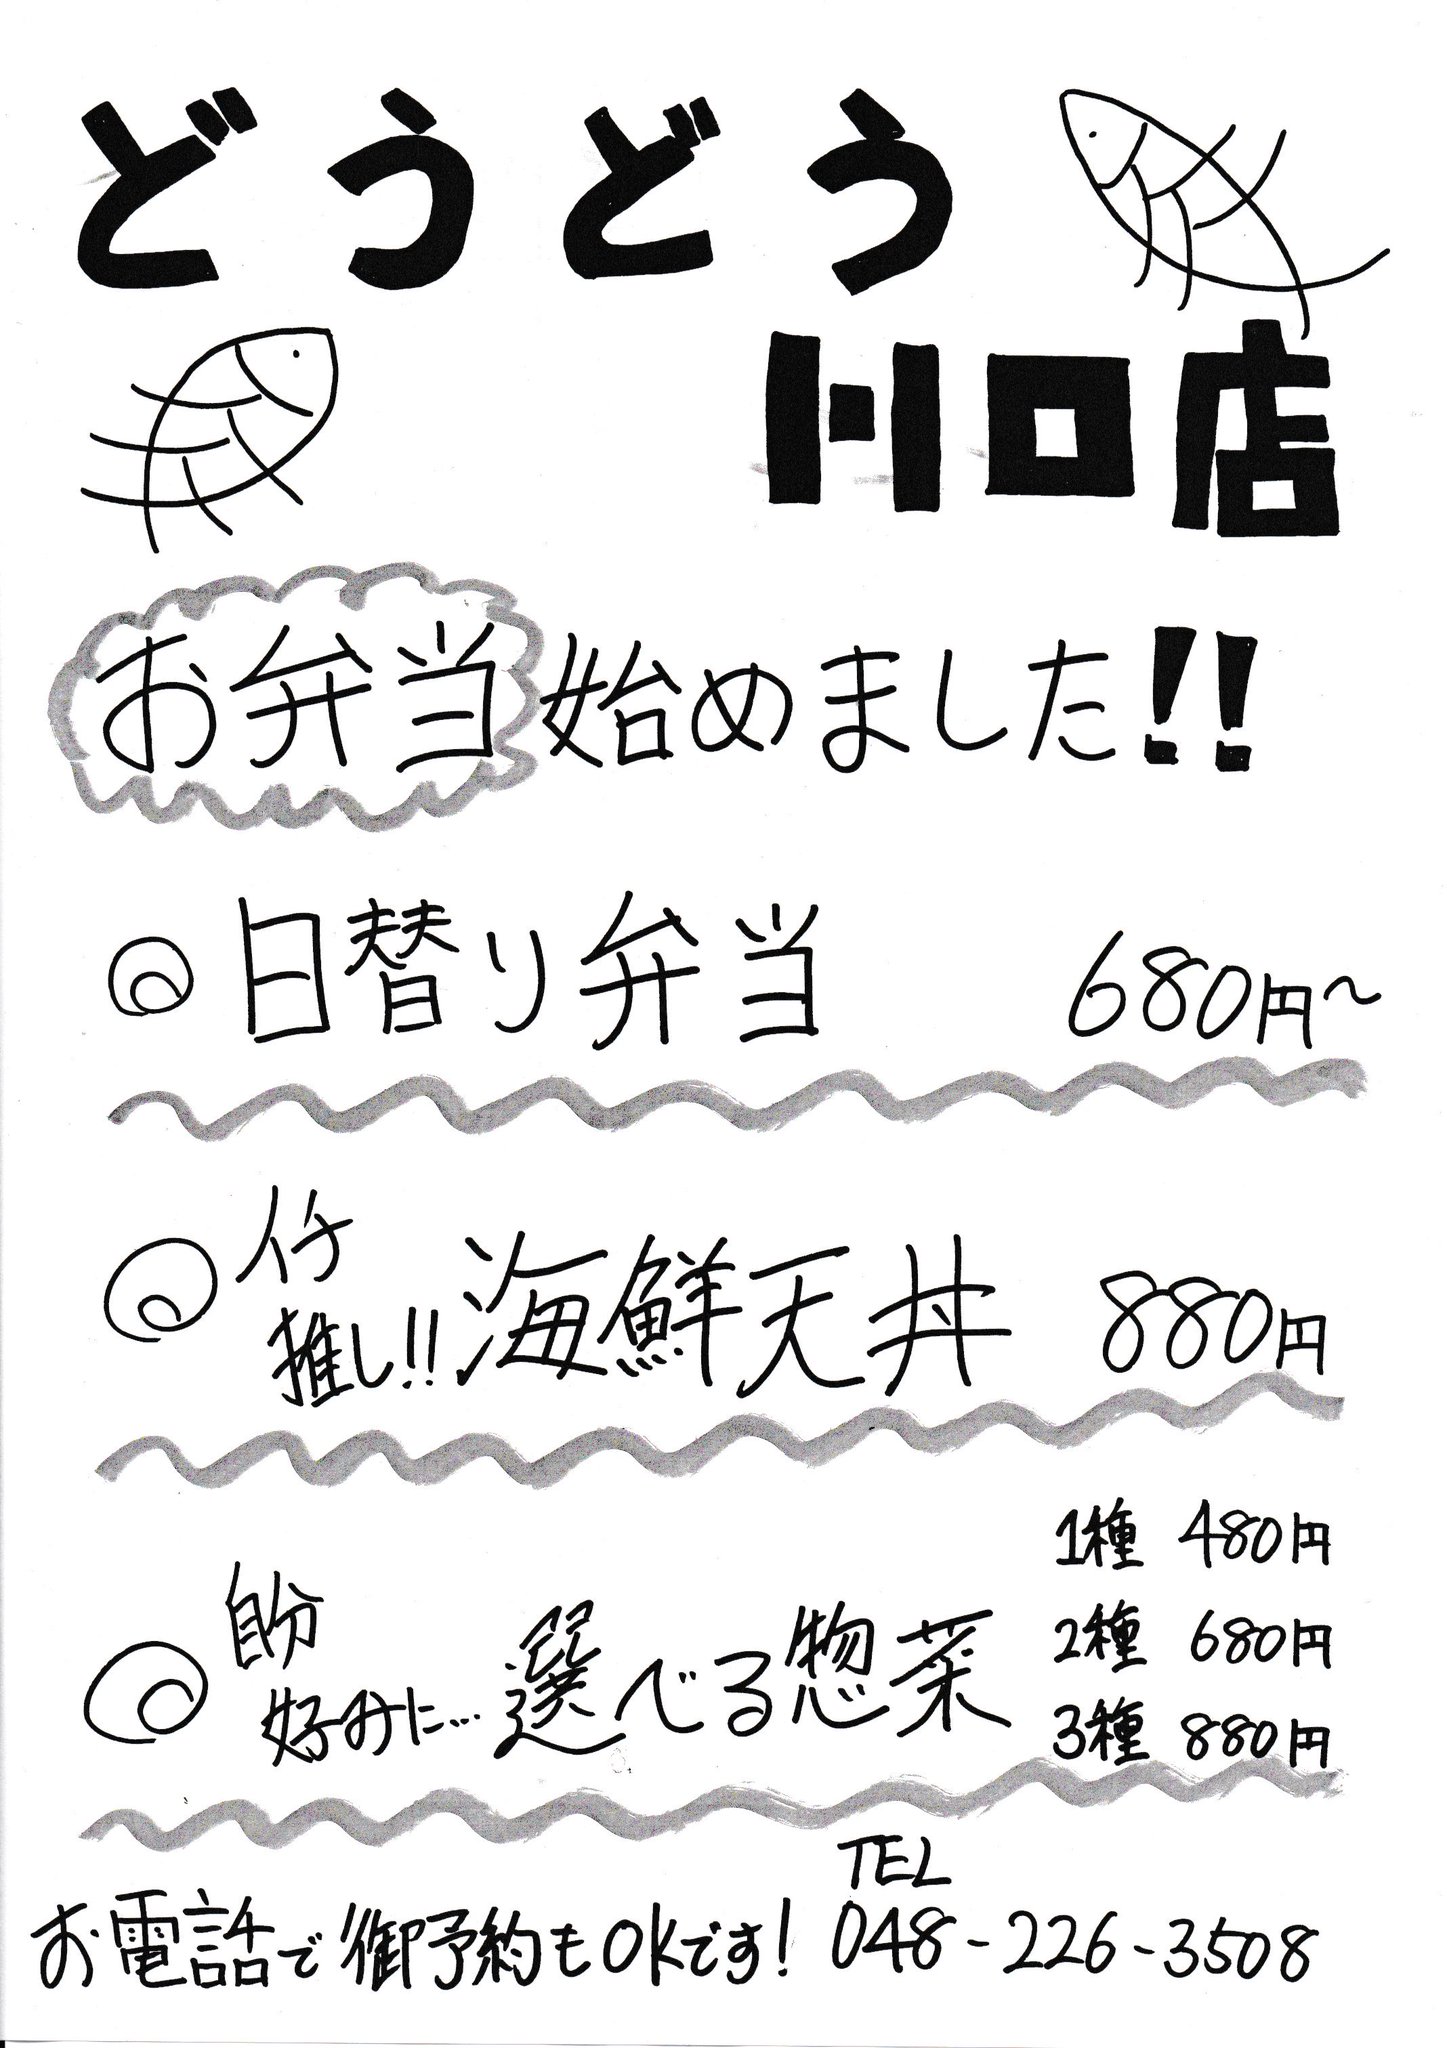 どうどう
川口店
お弁当始めました!!
日替り弁当 680円~
イチ
推し!! 海鮮天丼 880円
自分
好みに… 選べる惣菜
1種 480円
2種 680円
3種 880円
お電話で御予約もOKです!
TEL
048-226-3508